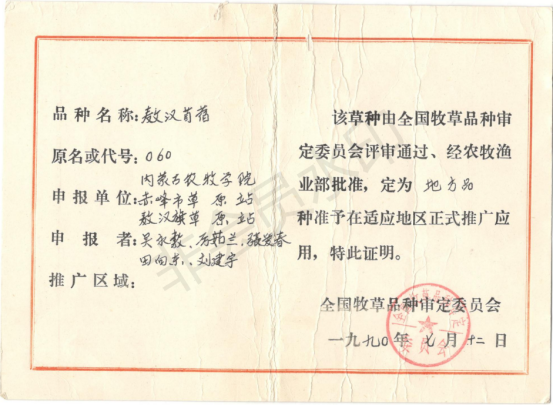 品种名称：敖汉苜蓿
原名或代号：060
内蒙古农牧学院
申报单位：赤峰市草原站
敖汉旗草原站
申报者：吴永敷、
田向东、刘建宇
推广区域：
该草种由全国牧草品种审
定委员会评审通过、经农牧渔
业部批准，定为 地方品
种准予在适应地区正式推广应
用，特此证明。
全国牧草品种审定委员会
一九九〇年 月 十二 日